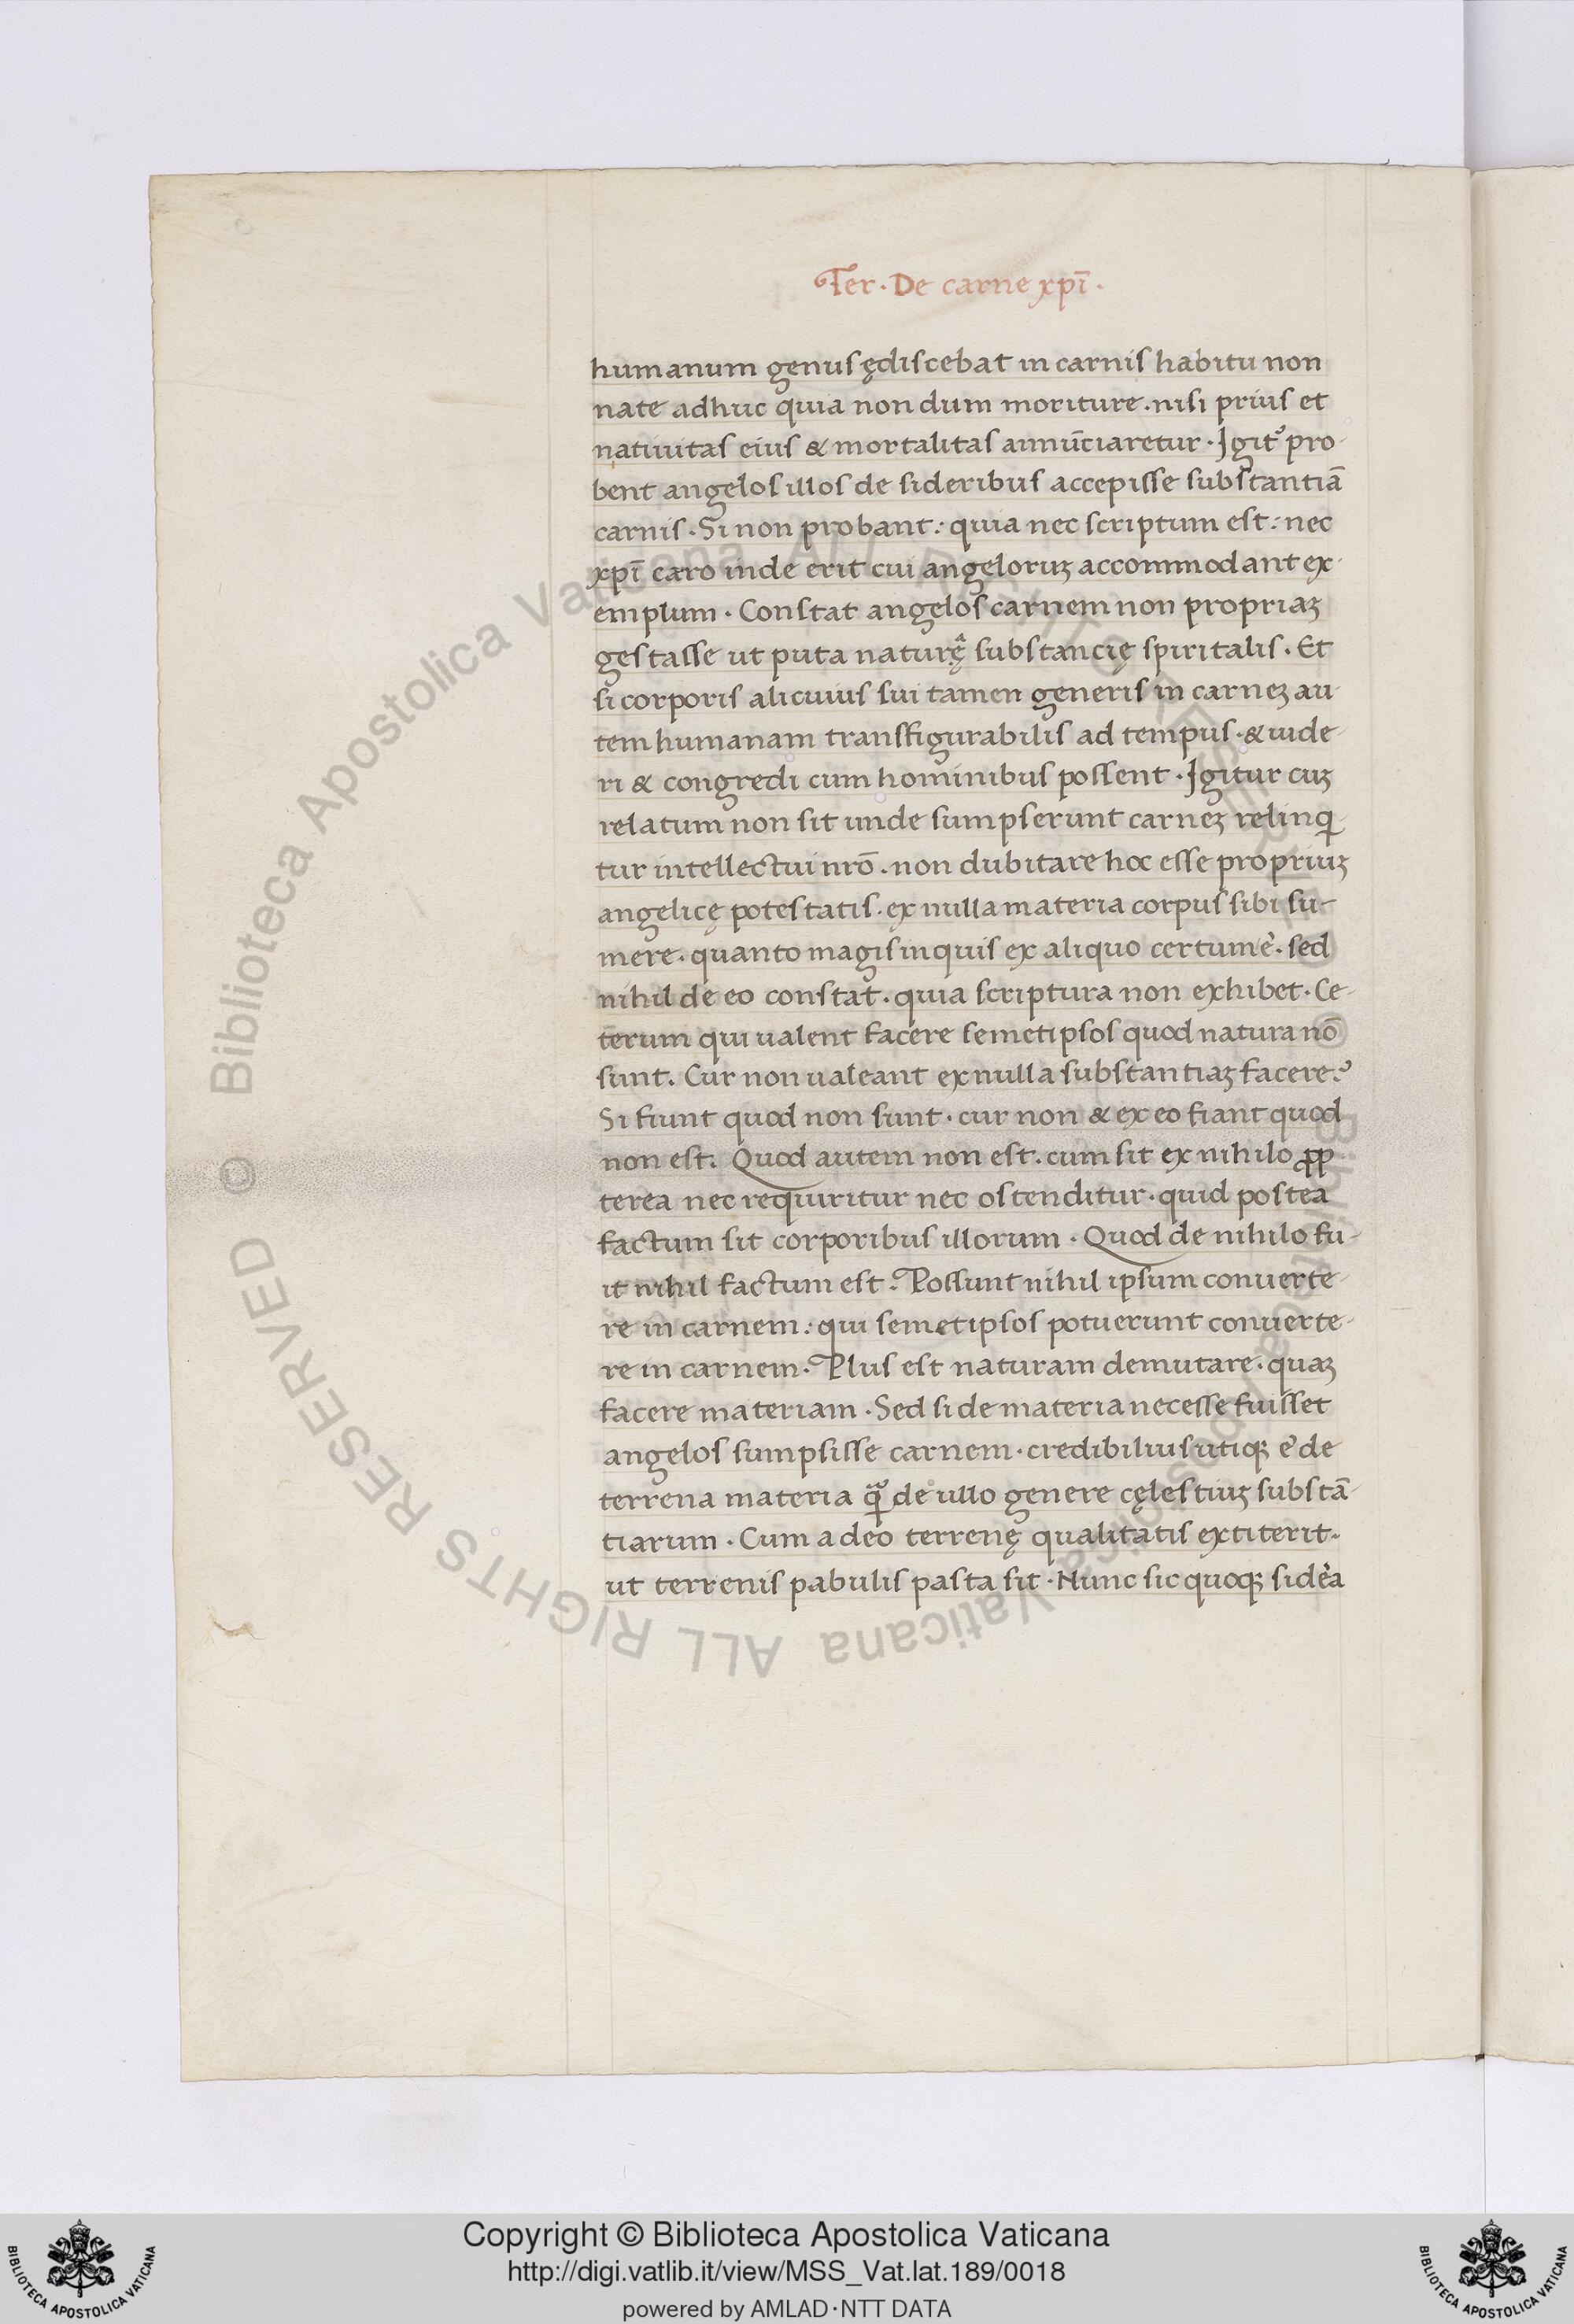 Ter. De carne xpī.
humanum genus ędiscebat in carnis habitu non
nate adhuc quia non dum moriture. nisi prius et
natiuitas eius & mortalitas annūciaretur. Igitᷣ pro-
bent angelos illos de sideribus accepisse substantiā
carnis. Si non probant: quia nec scriptum est: nec
xpī caro inde erit cui angeloruꝫ accommodant ex-
emplum. Constat angelos carnem non propriaꝫ
gestasse ut puta naturę substancię spiritalis. Et
si corporis alicuius sui tamen generis in carneꝫ au-
tem humanam transfigurabilis ad tempus. & uide-
ri & congredi cum hominibus possent. Igitur cuꝫ
relatum non sit unde sumpserunt carneꝫ relinqi-
tur intellectui nrō. non dubitare hoc esse propriuꝫ
angelicę potestatis. ex nulla materia corpus sibi su-
mere. quanto magis inquis ex aliquo certum ē. sed
nihil de eo constat. quia scriptura non exhibet. Ce-
terum qui ualent facere semetipsos quod natura nō
sunt. Cur non ualeant ex nulla substantiaꝫ facere?
Si fiunt quod non sunt. cur non & ex eo fiant quod
non est. Quod autem non est. cum sit ex nihilo ꝓp
terea nec requiritur nec ostenditur. quid postea
factum sit corporibus illorum. Quod de nihilo fu-
it nihil factum est. Possunt nihil ipsum conuerte-
re in carnem: qui semetipsos potuerunt conuerte-
re in carnem. Plus est naturam demutare. quaꝫ
facere materiam. Sed si de materia necesse fuisset
angelos sumpsisse carnem. credibilius utiqꝫ ē de
terrena materia qᷓ de ullo genere cęlestiuꝫ substā-
tiarum. Cum adeo terrenę qualitatis extiterit.
ut terrenis pabulis pasta sit. Nunc sic quoqꝫ siderea
Copyright © Biblioteca Apostolica Vaticana
http://digi.vatlib.it/view/MSS_Vat.lat.189/0018
powered by AMLAD·NTT DATA
BIBLIOTECA APOSTOLICA VATICANA
BIBLIOTECA APOSTOLICA VATICANA
© Biblioteca Apostolica Vaticana ALL RIGHTS RESERVED
© Biblioteca Apostolica Vaticana ALL RIGHTS RESERVED